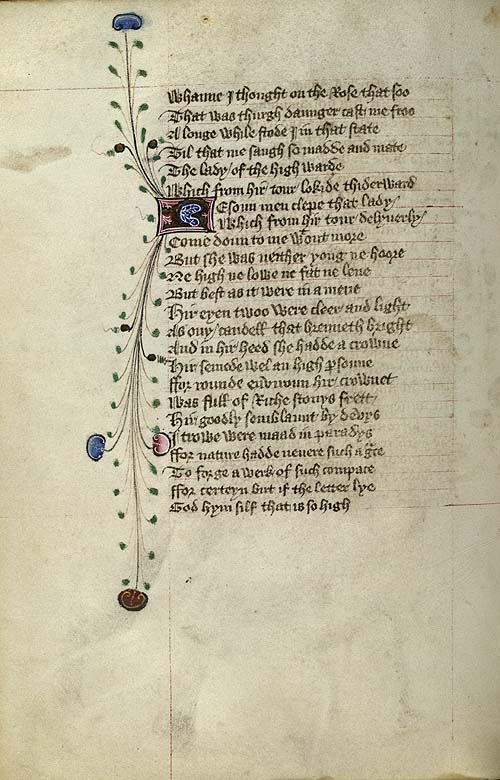 Whanne I thought on the Rose that soo
That was thurgh daunger cast me froo
A longe while stode I in that state
Til that me saugh so madde and mate
The lady of the high warde
Which from hir tour lokide thiderward
Resoun men clepe that lady
Which from hir tour delyuerly
Come doun to me wtout more
But she was neither yong ne hoore
Ne high ne lowe ne fat ne lene
But best as it were in a mene
Hir eyen twoo were cleer and light
As ony candell that brenneth bright
And in hir heed she hadde a crowne
Hir semede wel an high psoune
ffor rounde enuyroun hir crownet
Was full of Riche stonys frett
Hir goodly semblaunt by deuys
I trowe were maad in paradys
ffor nature hadde neuere such a gce
To forge a werk of such compace
ffor certeyn but if the letter lye
God hym silf that is so high